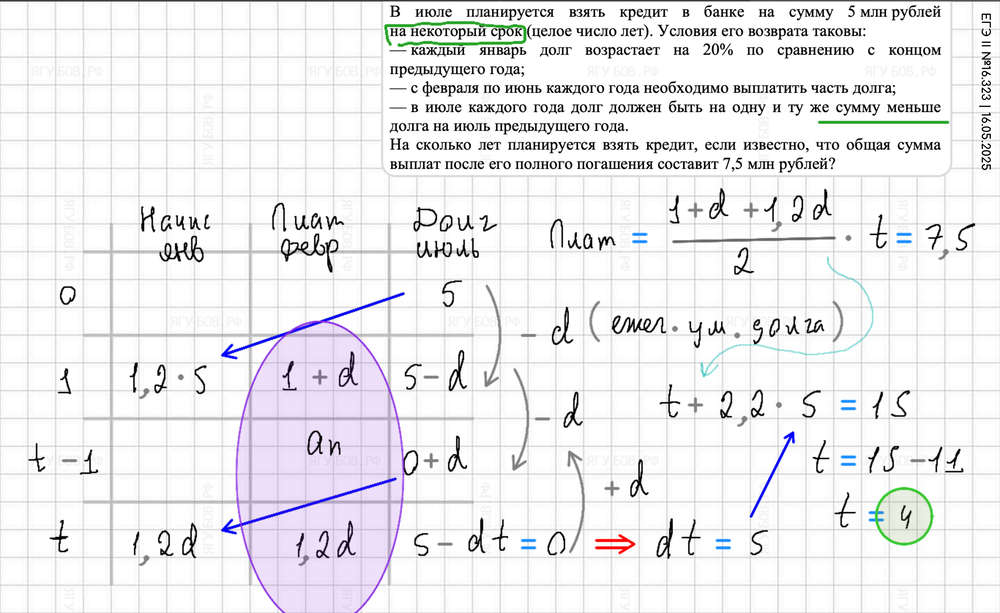 В июле планируется взять кредит в банке на сумму 5 млн рублей
на некоторый срок (целое число лет). Условия его возврата таковы:
— каждый январь долг возрастает на 20% по сравнению с концом
предыдущего года;
— с февраля по июнь каждого года необходимо выплатить часть долга;
— в июле каждого года долг должен быть на одну и ту же сумму меньше
долга на июль предыдущего года.
На сколько лет планируется взять кредит, если известно, что общая сумма
выплат после его полного погашения составит 7,5 млн рублей?
ЕГЭ II №16.323 | 16.05.2025
Начис янв
Плат февр
Долг июль
Плат = (1 + d + 1,2d)/2 · t = 7,5
0 5
- d (ежег. ум. долга)
1 1,2 · 5 1 + d 5 - d
- d
t + 2,2 · 5 = 15
t - 1 an 0 + d
t = 15 - 11
+ d
t = 4
t 1,2d 1,2d 5 - dt = 0 ⇒ dt = 5
ЯГУБОВ.РФ